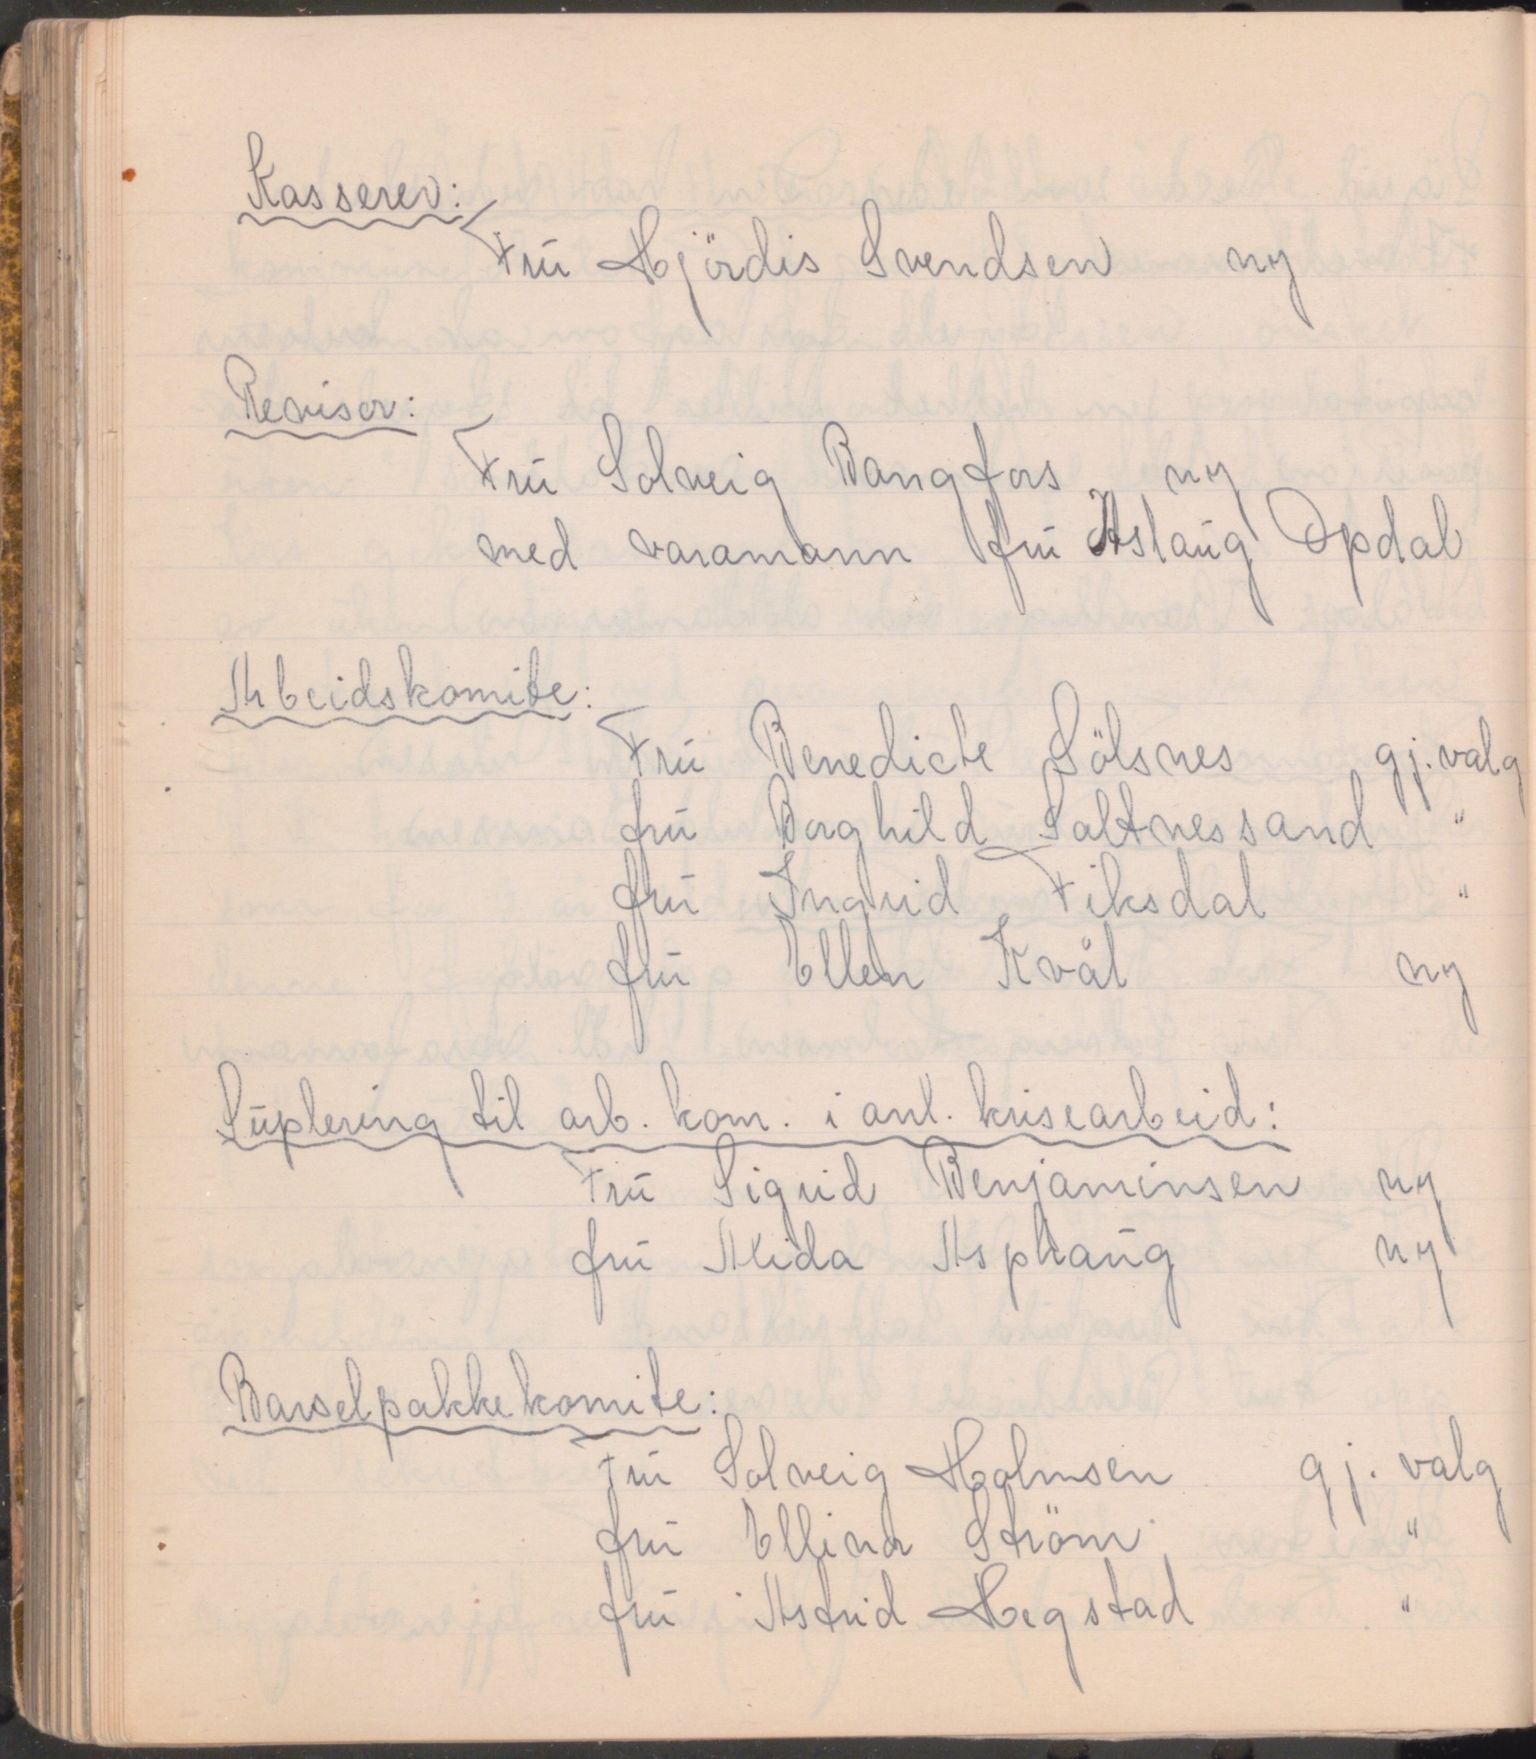 Kasserer:
Frü Hjördis Svendsen ny
Revisor:
Frü Solveig Bangfors ny
med varamann frü Aslaüg Opdal
Arbeidskomite:
Frü Benedicte Sölsnes gj. valg
frü Borghild Saltnessand "
frü Ingrid Fiksdal "
frü Ellen Kvål ny
Süplering til arb. kom. i anl. krisearbeid:
Frü Sigrid Benjaminsen ny
frü Alida Asphaüg ny
Barselpakkekomite:
Frü Solveig Holmsen gj. valg
frü Ellinor Ström "
frü Astrid Hegstad "